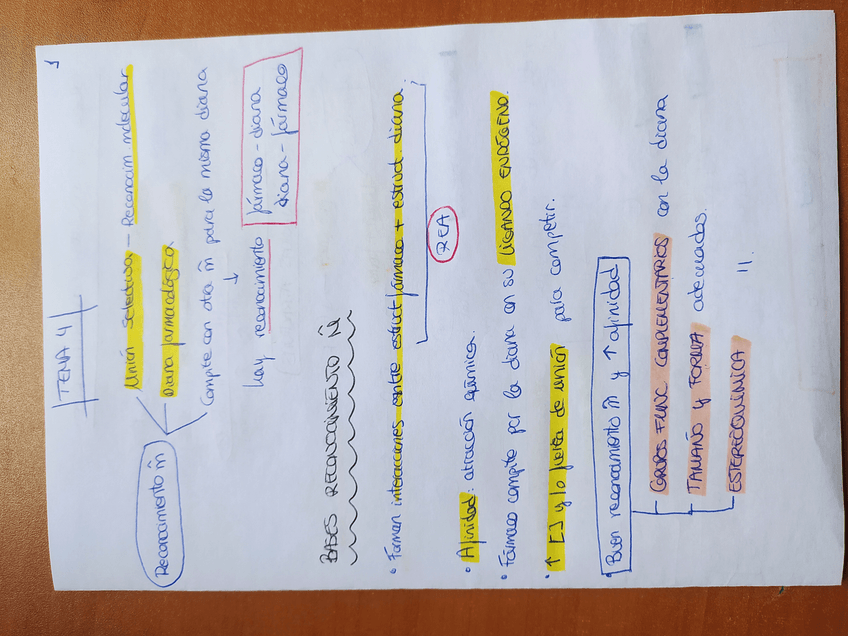 1
TEMA 4
Reconocimiento m̃
Unión selectiva - Reconocim molecular
Diana farmacológica
Compite con otra m̃ para la misma diana
↓
hay reconocimiento
fármaco - diana
diana - fármaco
BASES RECONOCIMIENTO m̃
• Forman interacciones entre estruct fármaco + estruct. diana.
REA
• Afinidad: atracción química.
• Fármaco compite por la diana con su LIGANDO ENDÓGENO.
• ↑ [ ] y la fuerza de unión para competir.
Buen reconocimiento m̃ y ↑ afinidad
GRUPOS FUNC COMPLEMENTARIOS con la diana
TAMAÑO y FORMA adecuados.
ESTEREOQUÍMICA "